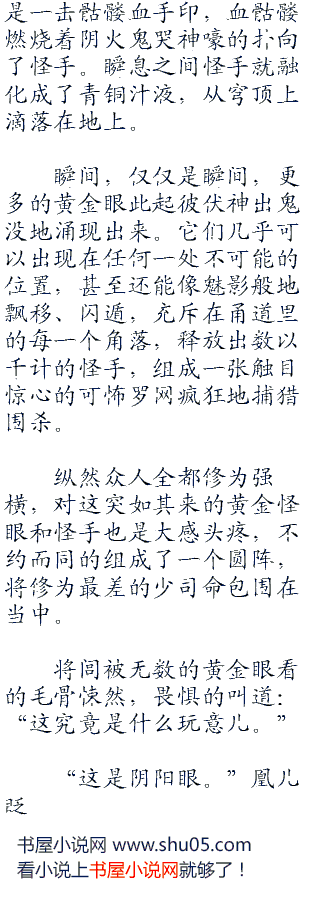 是一击骷髅血手印，血骷髅
燃烧着阴火鬼哭神嚎的扑向
了怪手。瞬息之间怪手就融
化成了青铜汁液，从穹顶上
滴落在地上。
瞬间，仅仅是瞬间，更
多的黄金眼此起彼伏神出鬼
没地涌现出来。它们几乎可
以出现在任何一处不可能的
位置，甚至还能像魅影般地
飘移、闪遁，充斥在甬道里
的每一个角落，释放出数以
千计的怪手，组成一张触目
惊心的可怖罗网疯狂地捕猎
围杀。
纵然众人全都修为强
横，对这突如其来的黄金怪
眼和怪手也是大感头疼，不
约而同的组成了一个圆阵，
将修为最差的少司命包围在
当中。
将闾被无数的黄金眼看
的毛骨悚然，畏惧的叫道：
“这究竟是什么玩意儿。”
“这是阴阳眼。”凰儿
眨
书屋小说网 www.shu05.com
看小说上书屋小说网就够了！